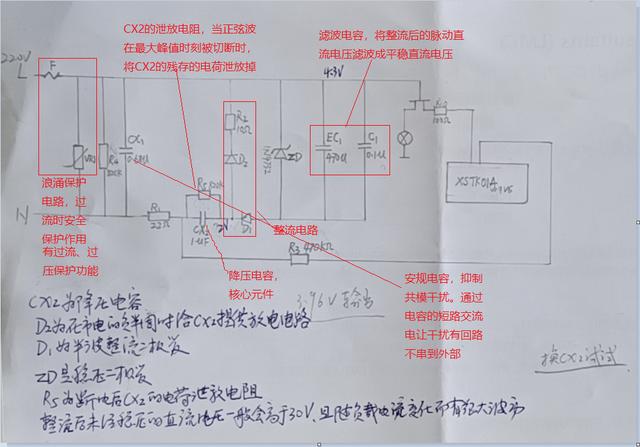 CX2的泄放电阻，当正弦波
在最大峰值时刻被切断时，
将CX2的残存的电荷泄放掉
滤波电容，将整流后的脉动直
流电压滤波成平稳直流电压
220V
L
F
4.3V
R2
10Ω
CX1
0.68μ
D2
ZD
EC1
470μ
C1
0.1μ
浪涌保护
电路，过
流时安全
保护作用
有过流、过
压保护功能
N
R1
22Ω
CX2
1μF
D1
整流电路
R3 470KΩ
降压电容，
核心元件
安规电容，抑制
共模干扰。通过
电容的短路交流
电让干扰有回路
不串到外部
3.96V输出
换CX2试试
CX2为降压电容
D2为在市电的负半周时给CX2提供放电电路
D1为半波整流二极管
ZD是稳压二极管
R5为断电后CX2的电荷泄放电阻
整流后未经稳压的直流电压一般会高于30V，且随负载电流变化而有很大波动